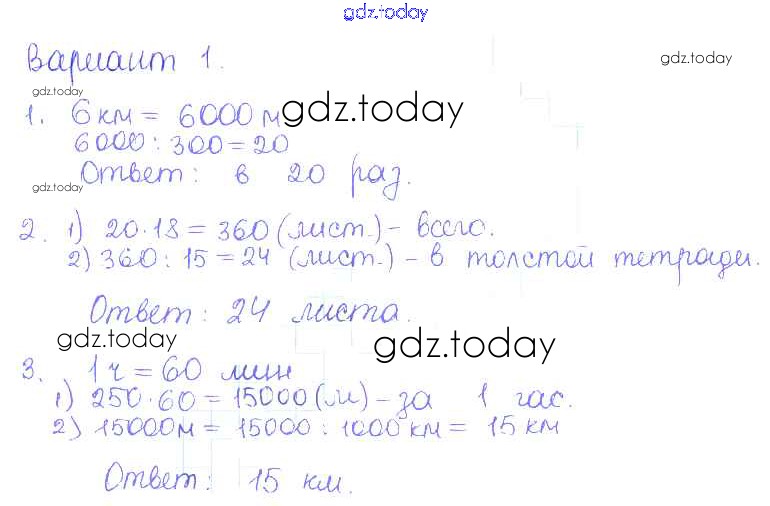 gdz.today
Вариант 1.
gdz.today
gdz.today
1. 6 км = 6000 м
gdz.today
6000 : 300 = 20
Ответ: в 20 раз.
gdz.today
2. 1) 20·18 = 360 (лист.) - всего.
2) 360 : 15 = 24 (лист.) - в толстой тетради.
Ответ: 24 листа.
gdz.today
gdz.today
3. 1 ч = 60 мин
1) 250·60 = 15000 (м) - за 1 час.
2) 15000м = 15000 : 1000 км = 15 км
Ответ: 15 км.